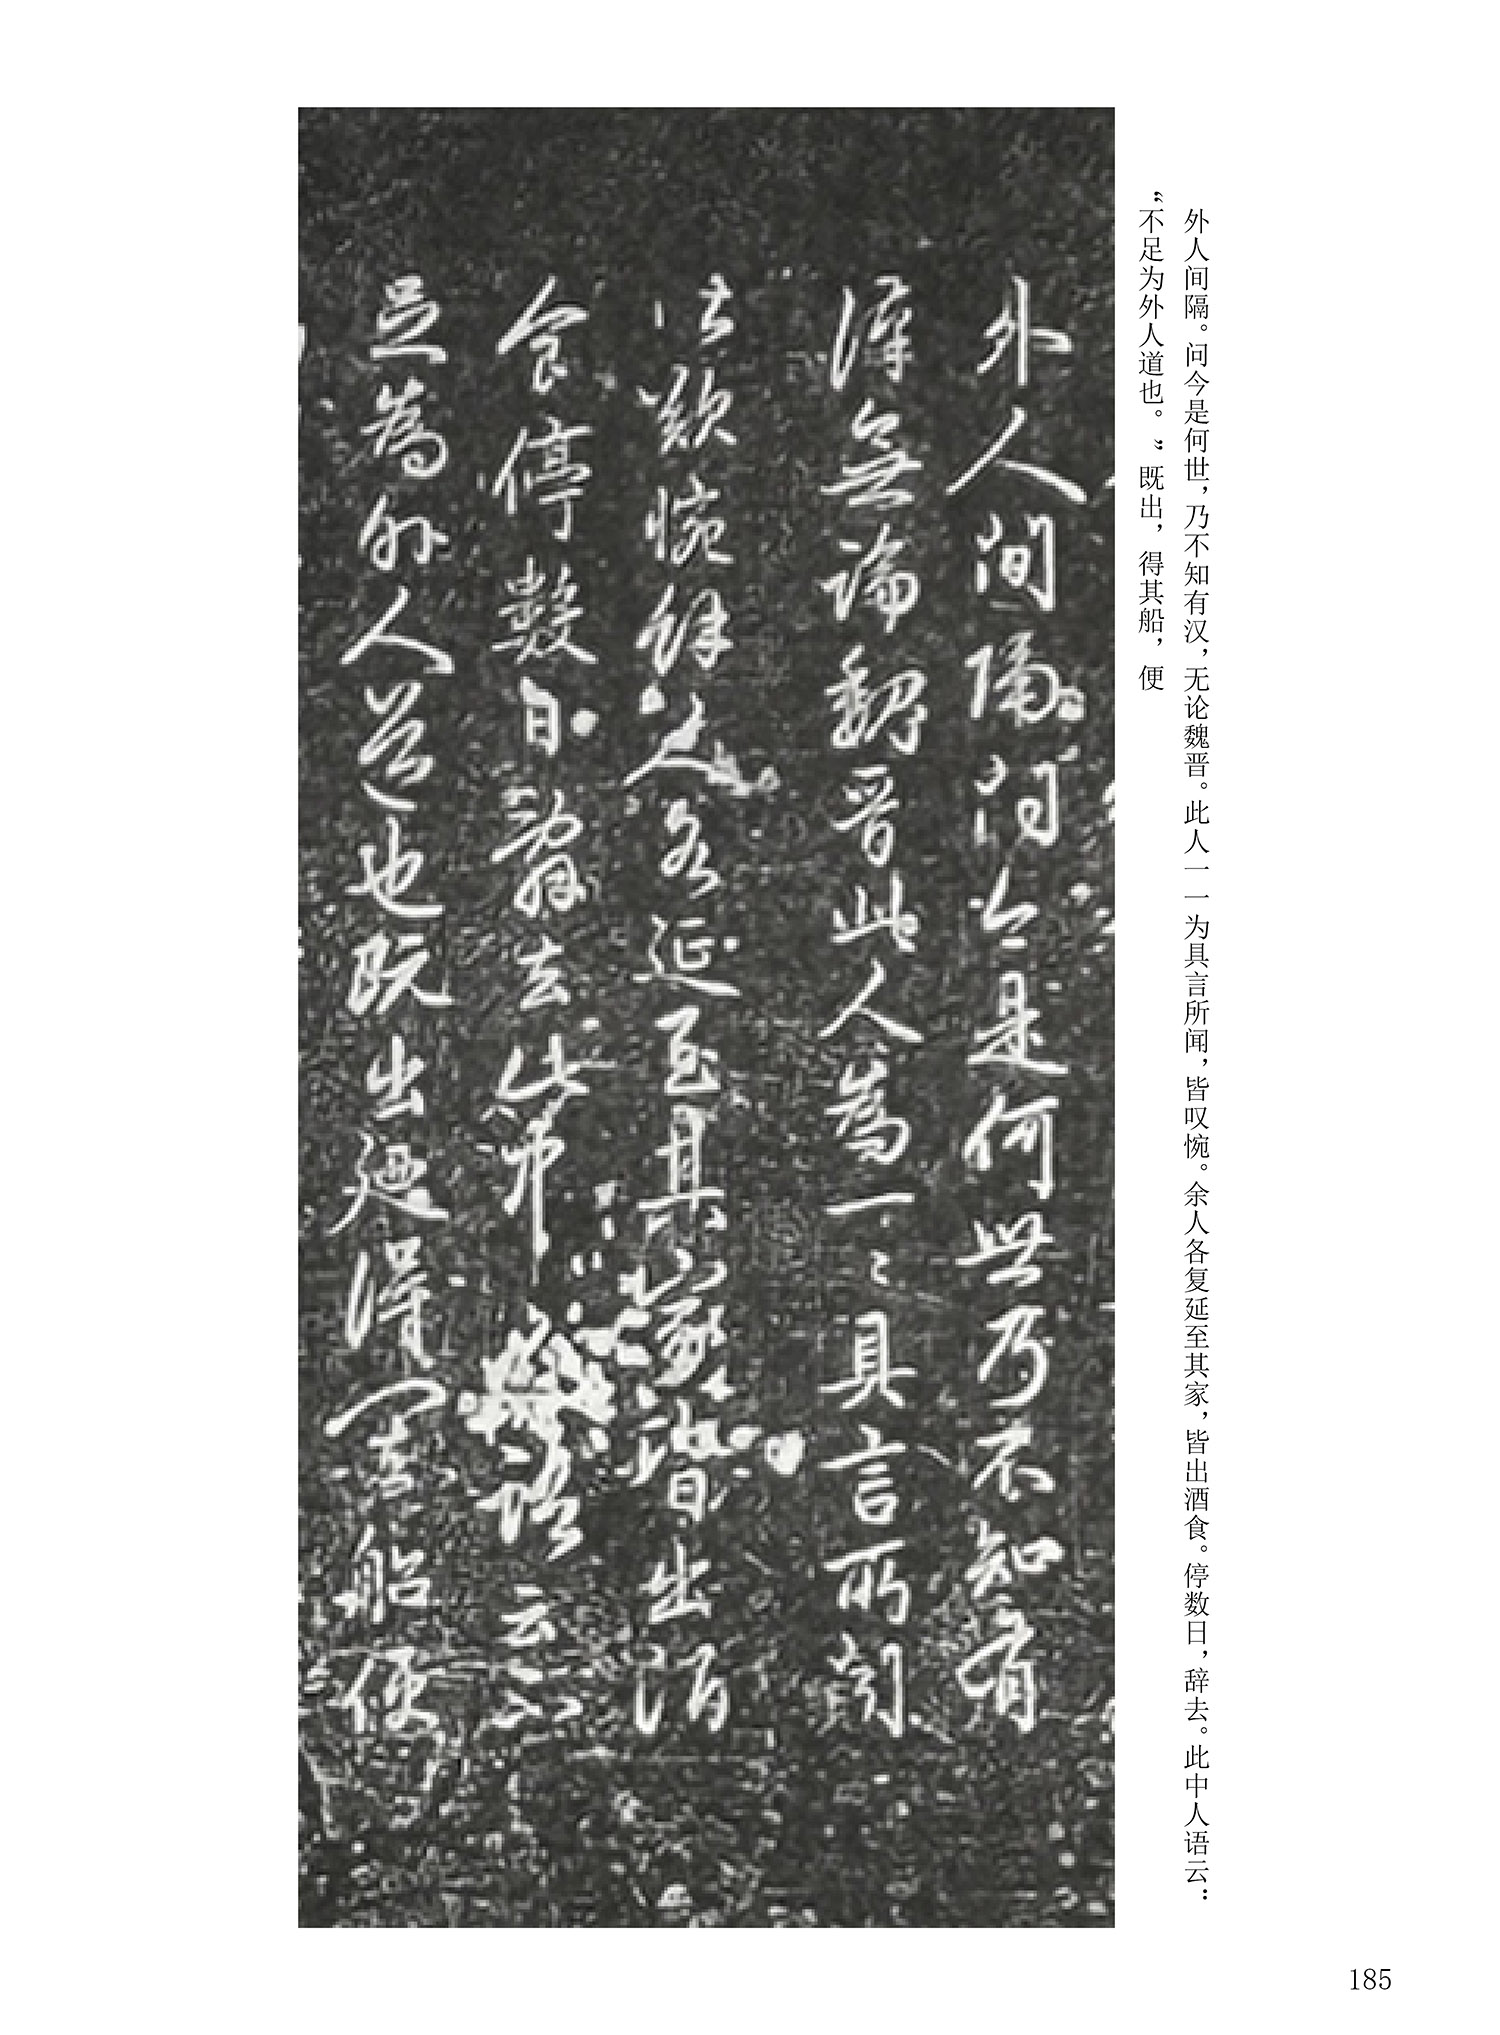 外人间隔。问今是何世，乃不知有汉，无论魏晋。此人一一为具言所闻，皆叹惋。余人各复延至其家，皆出酒食。停数日，辞去。此中人语云：
“不足为外人道也。”既出，得其船，便
外人間隔問今是何世乃不知有
漢無論魏晉此人為一〻具言所聞
皆歎惋餘人各延至其家皆出酒
食停數日辭去此中語云不
足為外人道也既出得船便
185